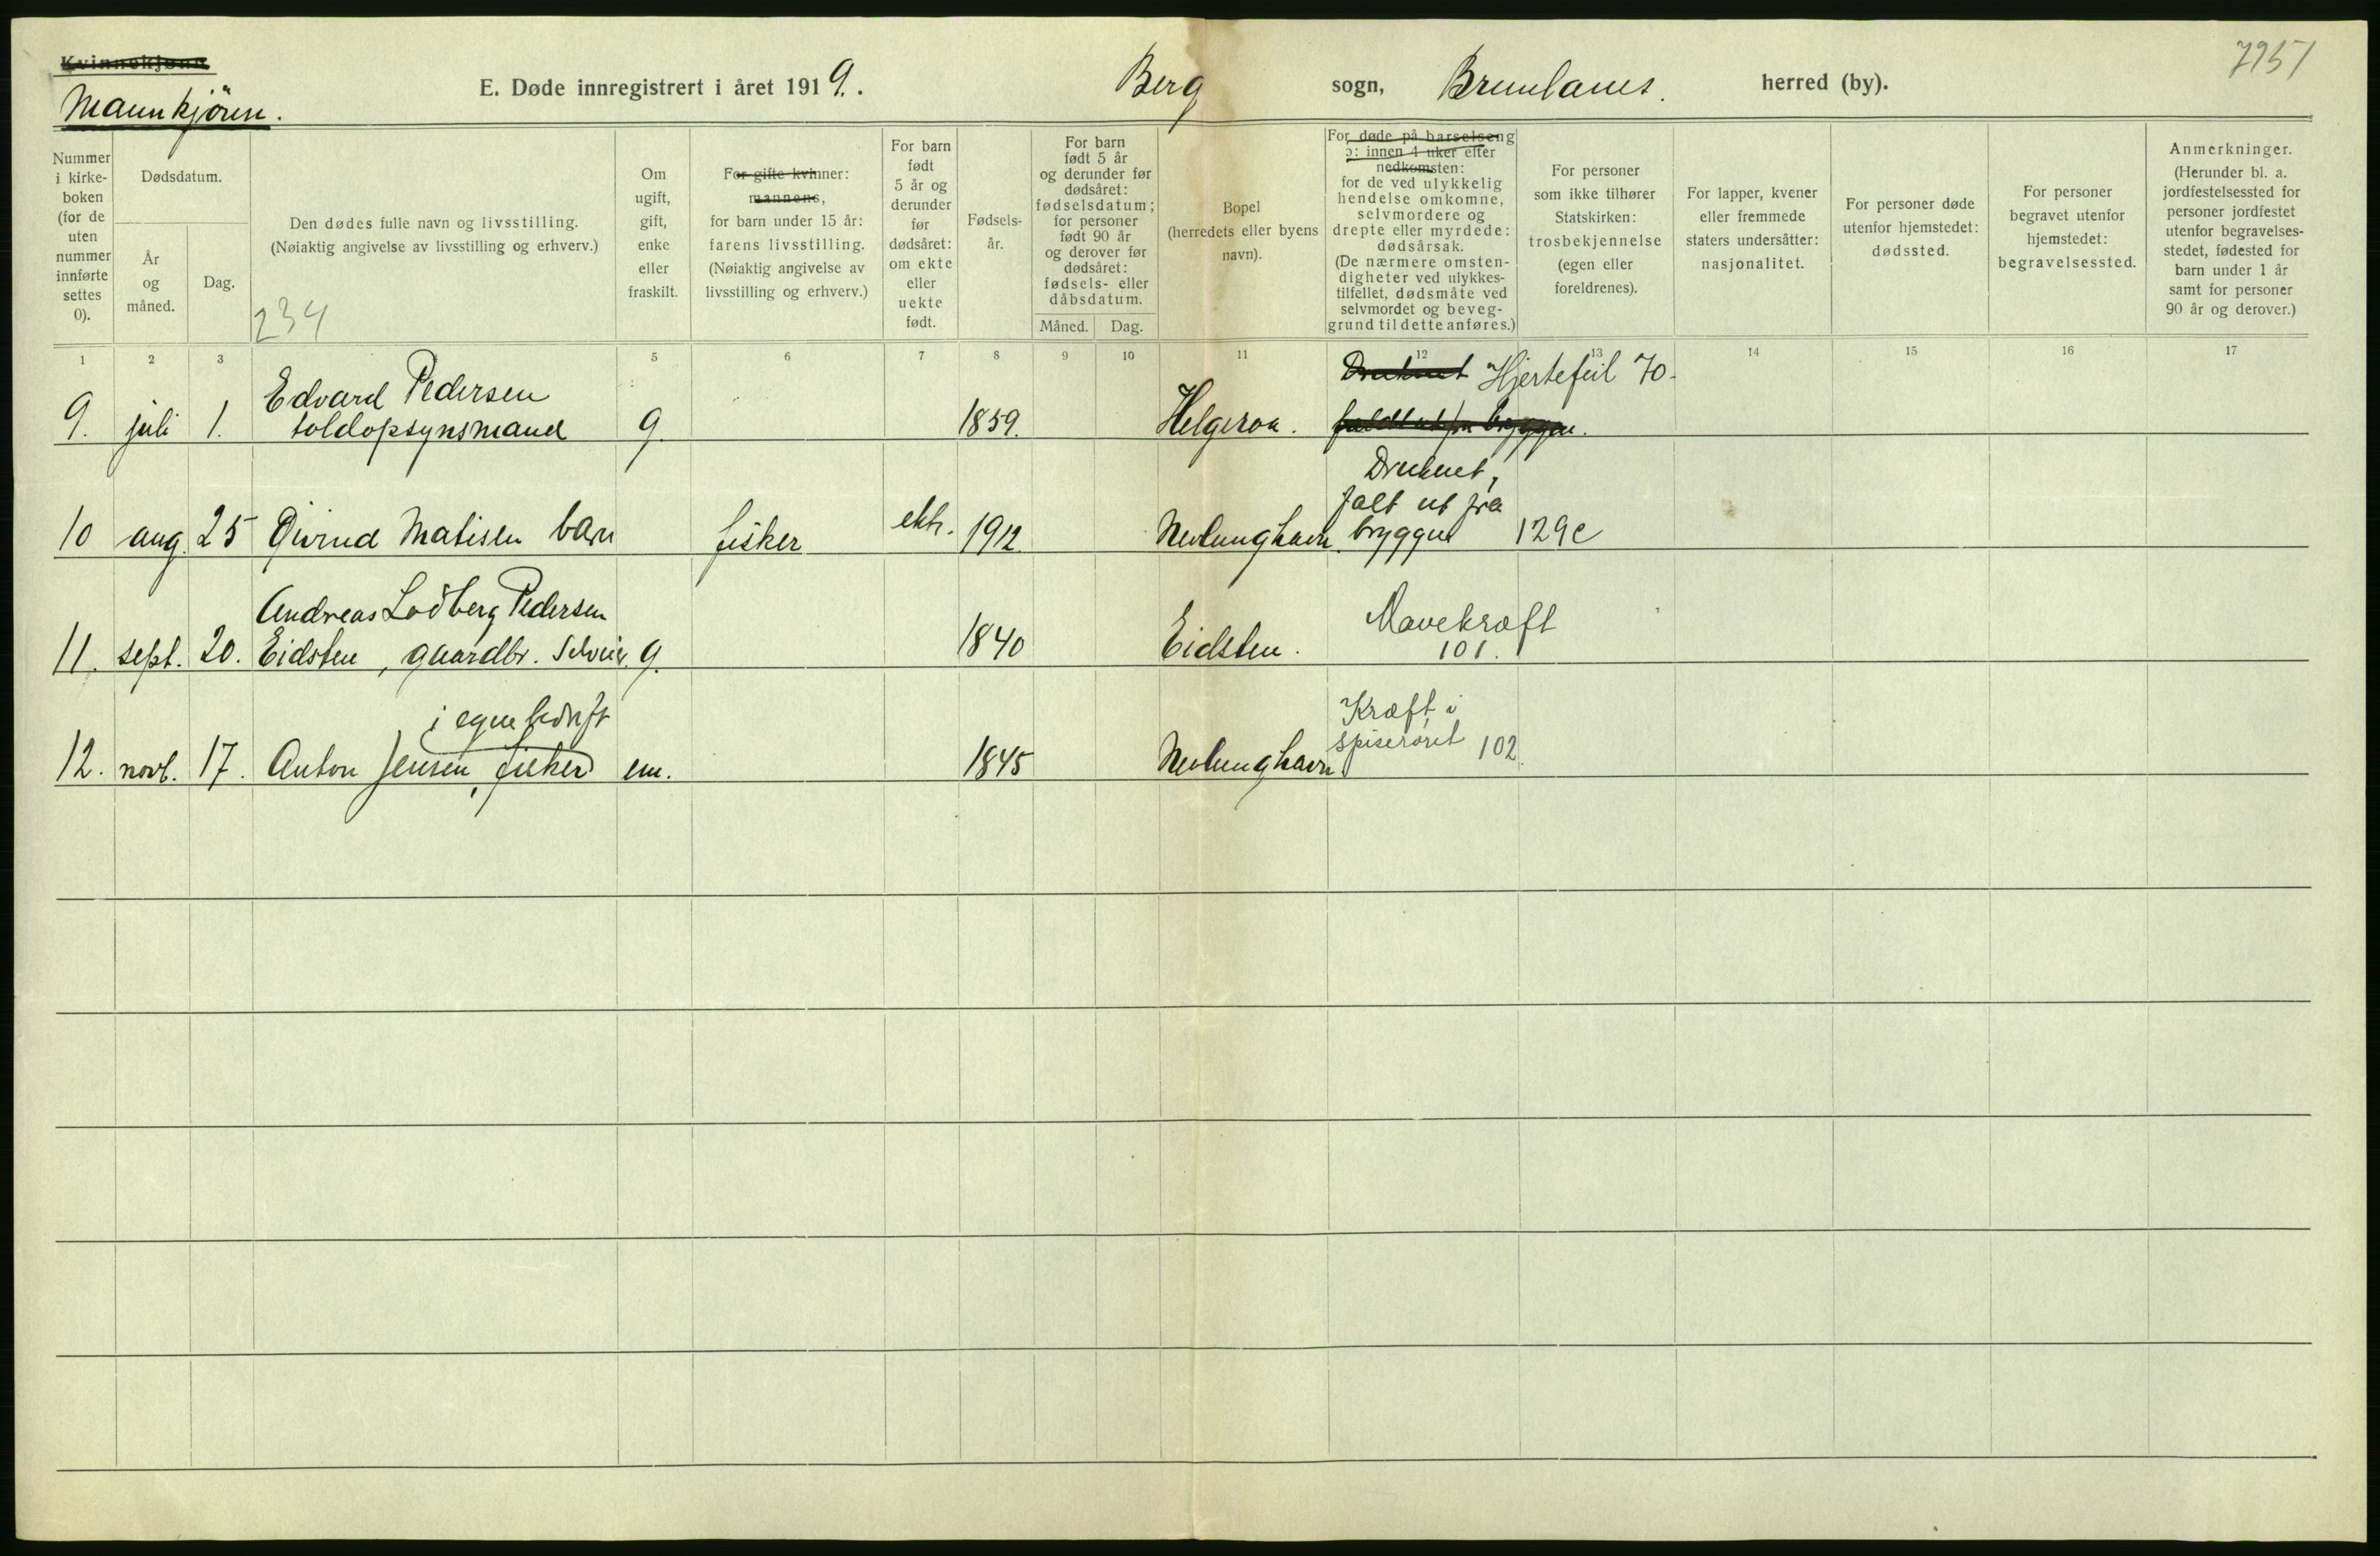 Kvinnekjønn
Mannkjönn.
E. Døde innregistrert i året 1919. Berg sogn, Brunlanes. herred (by).
Nummer i kirke- boken (for de uten nummer innførte settes 0).
Dødsdatum.
År og måned.
Dag.
Den dødes fulle navn og livsstilling.
(Nøiaktig angivelse av livsstilling og erhverv.)
234
Om ugift, gift, enke eller fraskilt.
For gifte kvinner: mannens,
for barn under 15 år: farens livsstilling.
(Nøiaktig angivelse av livsstilling og erhverv.)
For barn født 5 år og derunder før dødsåret: om ekte eller uekte født.
Fødsels- år.
For barn født 5 år og derunder før dødsåret: fødselsdatum; for personer født 90 år og derover før dødsåret: fødsels- eller dåbsdatum.
Måned. Dag.
Bopel (herredets eller byens navn).
For døde på barselseng
ɔ: innen 4 uker efter
nedkomsten:
for de ved ulykkelig
hendelse omkomne,
selvmordere og
drepte eller myrdede:
dødsårsak.
(De nærmere omsten-
digheter ved ulykkes-
tilfellet, dødsmåte ved
selvmordet og beveg-
grund til dette anføres.)
For personer som ikke tilhører Statskirken: trosbekjennelse (egen eller foreldrenes).
For lapper, kvener eller fremmede staters undersåtter: nasjonalitet.
For personer døde utenfor hjemstedet: dødssted.
For personer begravet utenfor hjemstedet: begravelsessted.
Anmerkninger.
(Herunder bl. a.
jordfestelsessted for
personer jordfestet
utenfor begravelses-
stedet, fødested for
barn under 1 år
samt for personer
90 år og derover.)
1 2 3 5 6 7 8 9 10 11 12 13 14 15 16 17
Edvard Pedersen Druknet Hjertefeil 70-
9. juli 1. toldopsynsmand g. 1859. Helgeroa. faldt ut fra bryggen.
Druknet,
falt ut fra
10 aug. 25 Øivind Matisen barn fisker ekte. 1912. Nevlunghavn. bryggen 129c
Andreas Lodberg Pedersen Mavekræft
11. sept. 20. Eidsten, gaardbr. Selveier. g. 1840 Eidsten. 101.
i egen bedrift Kræft i
spiserøret 102
12. novb. 17. Anton Jensen, fisker em. 1845 Nevlunghavn